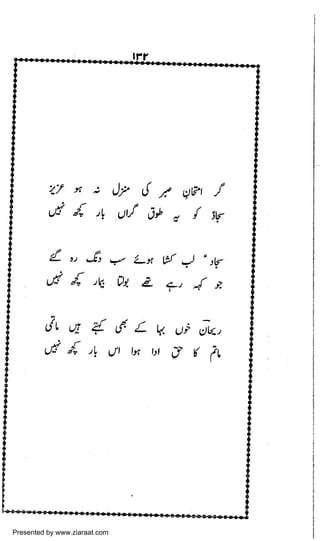 ۱۳۲
گر امتحانِ صبر کی منزل نہ ہو عزیز
سجادؑ کو یہ طوقِ گراں بار کچھ نہیں
سجادؑ لب کشا ہوئے سب دنگ رہ گئے
جو کہہ رہے تھے بولتا بیمار کچھ نہیں
ریحانؔ خوں بہا کے بھی کہتے ہیں ماتمی
ماتم کا حق ادا ہوا اس بار کچھ نہیں
Presented by www.ziaraat.com